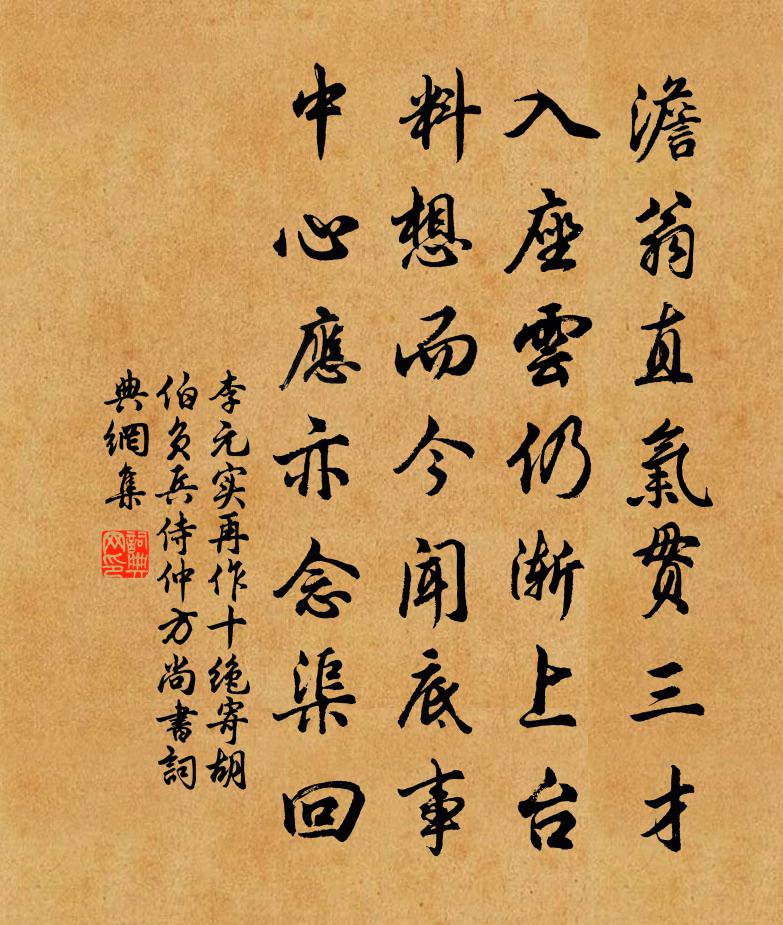 澹翁直氣貫三才
入座雲仍漸上台
料想而今聞底事
中心應亦念渠回
李元实再作十绝寄胡
伯负兵侍仲方尚書詞
典網集
詞典网印